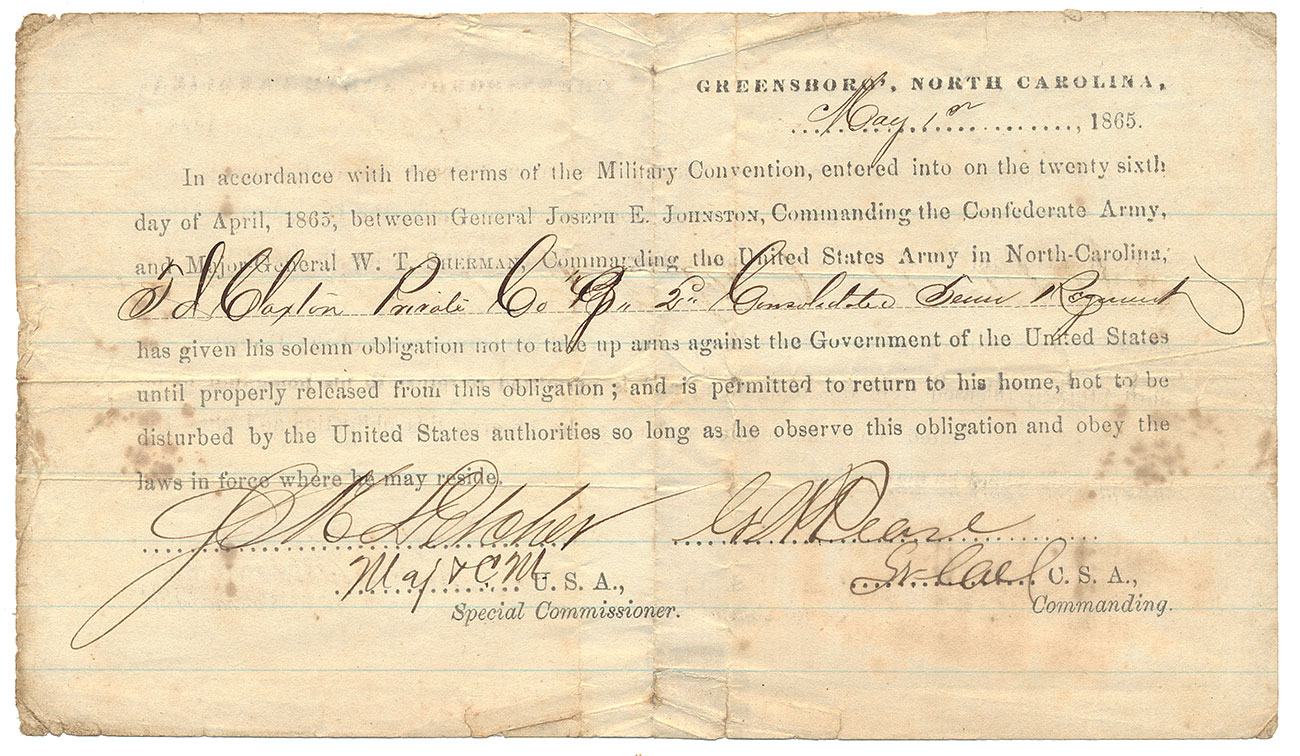 GREENSBORO', NORTH CAROLINA,
May 1st, 1865.
In accordance with the terms of the Military Convention, entered into on the twenty sixth
day of April, 1865, between General JOSEPH E. JOHNSTON, Commanding the Confederate Army,
and Major-General W. T. SHERMAN, Commanding the United States Army in North-Carolina,
Claxton Private Co "B" 2d Consolidated Tenn Regiment
has given his solemn obligation not to take up arms against the Government of the United States
until properly released from this obligation ; and is permitted to return to his home, not to be
disturbed by the United States authorities so long as he observe this obligation and obey the
laws in force where he may reside.
Maj U. S. A., C. S. A.,
Special Commissioner. Commanding.